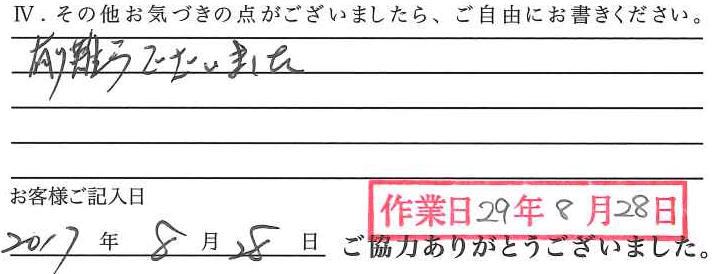 Ⅳ．その他お気づきの点がございましたら、ご自由にお書きください。
有り難うございました
お客様ご記入日
作業日29年8月28日
2017年8月28日 ご協力ありがとうございました。